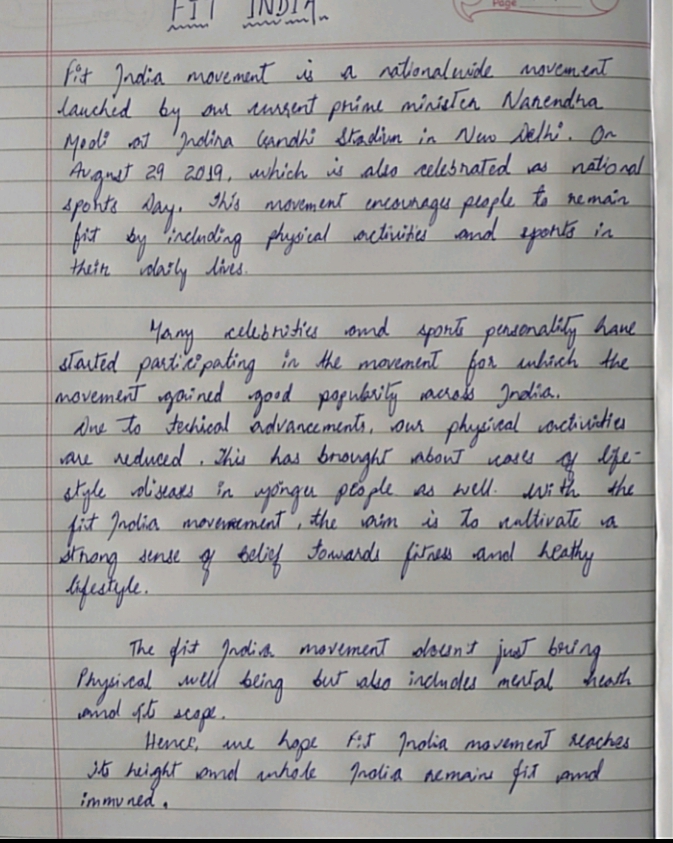 FIT INDIA
Page
Fit India movement is a nationalwide movement
lauched by our current prime minister Narendra
Modi at Indira Gandhi Stadium in New Delhi. On
August 29 2019, which is also celebrated as national
sports Day. This movement encourages people to remain
fit by including physical activities and sports in
their daily lives.
Many celebrities and sports personality have
started participating in the movement for which the
movement gained good popularity across India.
Due to techical advancements, our physical activities
are reduced. This has brought about cases of life-
style diseases in yonger people as well. With the
fit India movement, the aim is to cultivate a
strong sense of belief towards fitness and heathy
lifestyle.
The fit India movement doesn't just bring
Physical well being but also includes mental heath
and its scope.
Hence, we hope Fit India movement reaches
its height and whole India remains fit and
immuned.